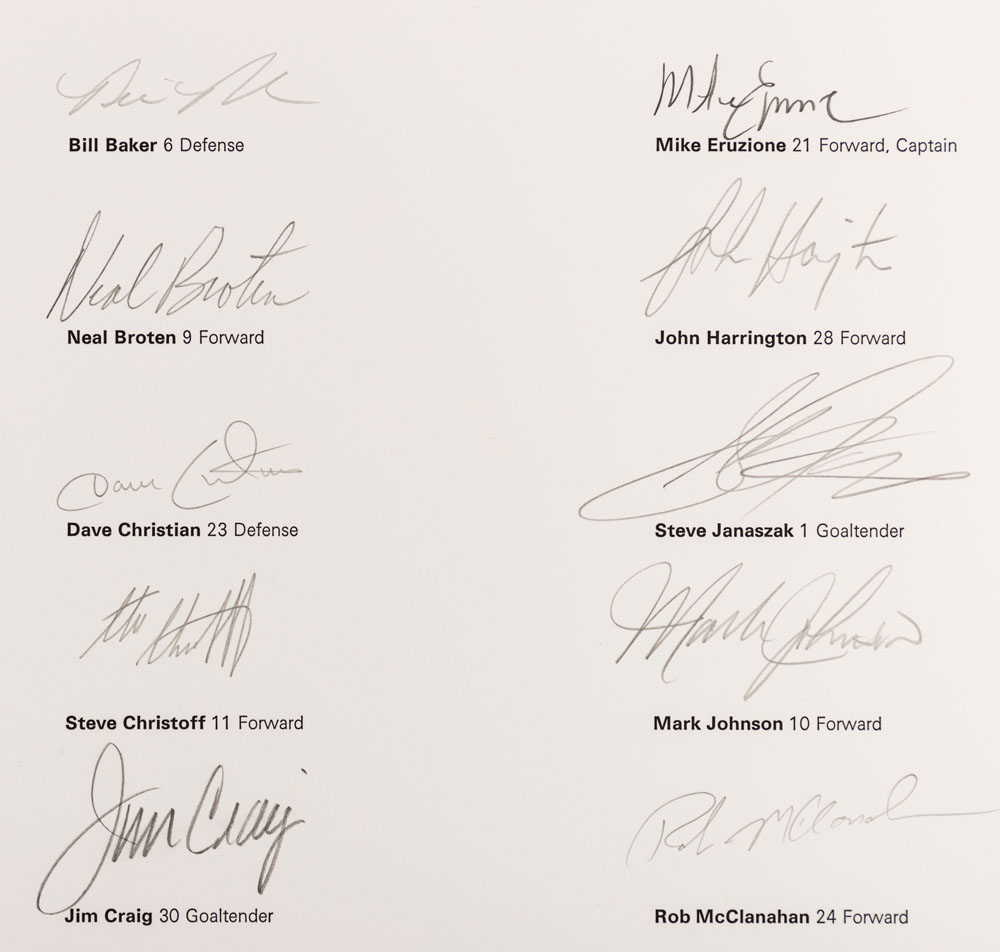 Bill Baker 6 Defense
Neal Broten
Neal Broten 9 Forward
Dave Christian
Dave Christian 23 Defense
Steve Christoff 11 Forward
Jim Craig
Jim Craig 30 Goaltender
Mike Eruzione 21 Forward, Captain
John
John Harrington 28 Forward
Steve Janaszak 1 Goaltender
Mark Johnson
Mark Johnson 10 Forward
Rob McClanahan
Rob McClanahan 24 Forward